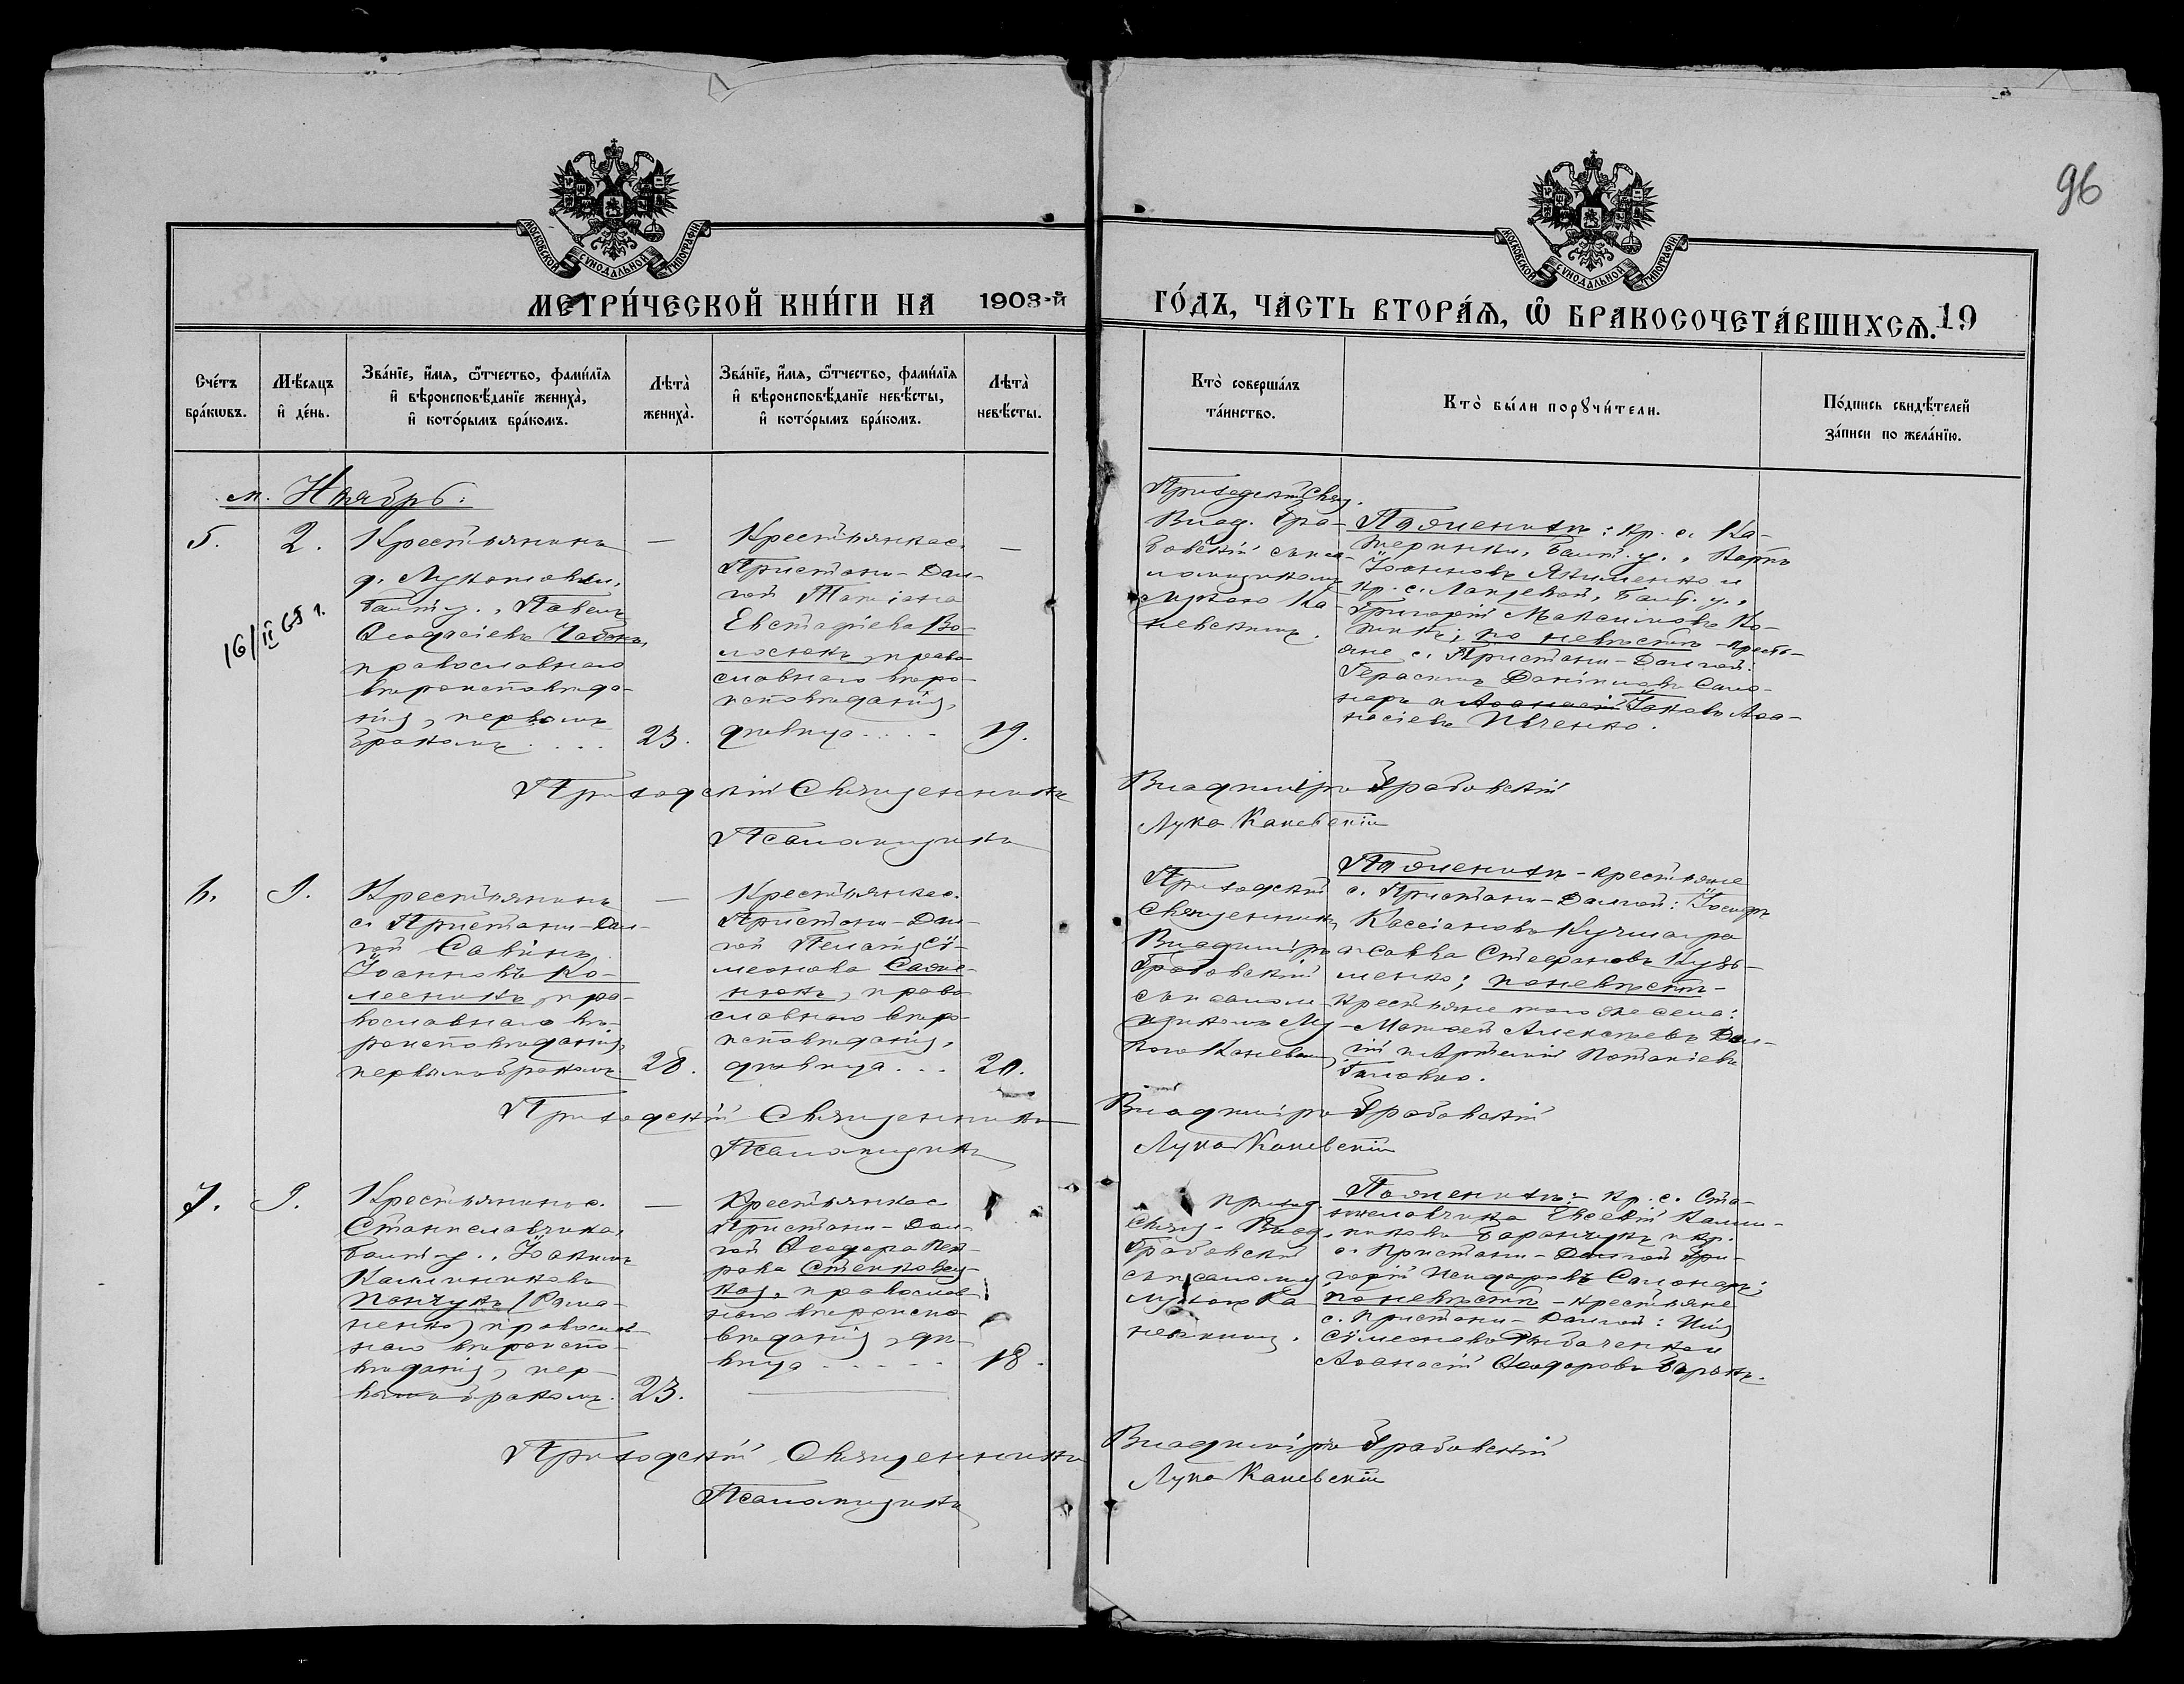 96
МОСКОВСКОЙ СУНОДАЛЬНОЙ ТИПОГРАФІИ
МОСКОВСКОЙ СУНОДАЛЬНОЙ ТИПОГРАФІИ
МЕТРИ́ЧЕСКОЙ КНИ́ГИ НА 1903-й
ГО́ДЪ, ЧА́СТЬ ВТОРА́Ѧ, Ѡ҆ БРАКОСОЧЕТА́ВШИХСѦ. 19
Сче́тъ бра́кѡвъ.
Мѣ́сяцъ и҆ де́нь.
Зва́нїе, и҆́мя, ѻ҆́тчество, фами́лїя и҆ вѣроисповѣ́данїе жениха̀, и҆ кото́рымъ бра́комъ.
Лѣта̀ жениха̀.
Зва́нїе, и҆́мя, ѻ҆́тчество, фами́лїя и҆ вѣроисповѣ́данїе невѣ́сты, и҆ кото́рымъ бра́комъ.
Лѣта̀ невѣ́сты.
Кто̀ соверша́лъ та́инство.
Кто̀ бы́ли порꙋчи́тели.
По́дпись свидѣ́телей за́писи по жела́нїю.
м. Ноябрь:
5.
2.
16/II 65 г.
Крестьянинъ
д.
Балт. у., Павелъ
Ѳеодосіевъ Чабанъ,
православнаго
вѣроисповѣда-
нія, первымъ
бракомъ . . . .
23.
Крестьянка с.
Пристани-Дол-
гой Татіана
Евстафіева Во-
лосюкъ, право
славнаго вѣро-
исповѣданія,
дѣвица . . . .
19.
Приходскій Свящ.
Влад. Гра-
бовскій съ пса-
ломщикомъ
Лукою Ка-
невскимъ.
По женихѣ: кр. с. Ка-
теринки, Балт. у., Карпъ
Іоанновъ Якименко и
кр. с. Балт. у.,
Григорій Максимовъ Ко-
; по невѣстѣ - кресть-
яне с. Пристани-Долгой:
Герасимъ Даніиловъ Само-
и Аѳанасій Іаковъ Аѳа-
насіевъ Ивченко.
Приходскій Священникъ Владиміръ Грабовскій
Псаломщикъ Лука Каневскій
6.
9.
Крестьянинъ
с. Пристани-Дол-
гой Савинъ
Іоанновъ Ко-
лесникъ, пра-
вославнаго вѣ-
роисповѣданія,
первымъ бракомъ
20.
Крестьянка с.
Пристани-Дол-
гой Пелагія Сѵ-
меонова
, право
славнаго вѣро-
исповѣданія,
дѣвица . . .
20.
Приходскій
Священникъ
Владиміръ
Грабовскій
съ псалом-
щикомъ Лу-
кою Каневск.
По женихѣ - крестьяне
с. Пристани-Долгой: Іосифъ
Кассіановъ Кучма
и Савва Стефановъ Кузь-
менко; по невѣстѣ -
крестьяне того же села:
Матѳей Алексѣевъ Дол-
гій и Артемій Потапіевъ
Головко.
Приходскій Священникъ Владиміръ Грабовскій
Псаломщикъ Лука Каневскій
7.
9.
Крестьянинъ с.
Станиславчика,
Балт. у., Іоакимъ
Каллиниковъ
(Рома-
ненко), православ-
наго вѣроиспо-
вѣданія, пер-
вымъ бракомъ.
23.
Крестьянка с.
Пристани-Дол-
гой Ѳеодора Пет-
рова Стенковец-
кая, православ
наго вѣроиспо-
вѣданія, дѣ-
вица . . . . .
18.
Приход.
Свящ. Влад.
Грабовскій
съ псаломщ.
Лукою Ка
невскимъ.
По женихѣ: - кр. с. Ста-
ниславчика Евсевій Калли-
никовъ Баранчукъ и кр.
с. Пристани-Долгой Гри-
горій Исидоровъ ;
по невѣстѣ - крестьяне
с. Пристани-Долгой: Илія
Сѵмеоновъ и
Аѳанасій Ѳеодоровъ .
Приходскій Священникъ Владиміръ Грабовскій
Псаломщикъ Лука Каневскій